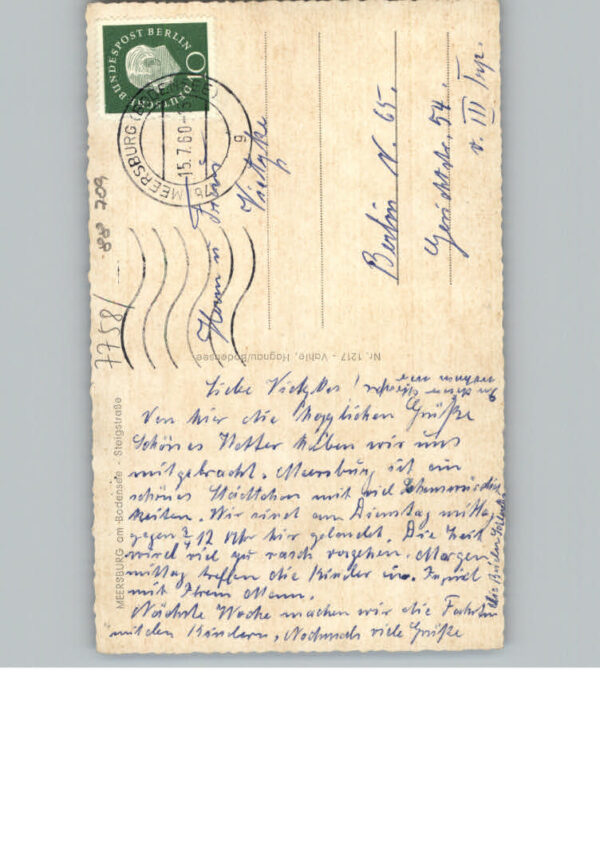 DEUTSCHE BUNDESPOST BERLIN
10
MEERSBURG (BODENSEE)
15.7.60
Herrn u. Frau
Vietzke
Berlin N. 65.
Gerichtstr. 54.
v. III Trp.
888 709
7758/
Nr. 1217 - Vahle, Hagnau/Bodensee
MEERSBURG am Bodensee - Steigstraße
Liebe Vietzkes!
Von hier die herzlichen Grüße
Schönes Wetter haben wir uns
mitgebracht. Meersburg ist ein
schönes Städtchen mit viel Sehenswürdig
keiten. Wir sind am Dienstag mittag
gegen 12 Uhr hier gelandet. Die Zeit
wird viel zu rasch vergehen. Morgen
mittag treffen die Kinder ein. Ingrid
mit Ihrem Mann.
Nächste Woche machen wir die Fahrten
mit den Kindern. Nochmals viele Grüße